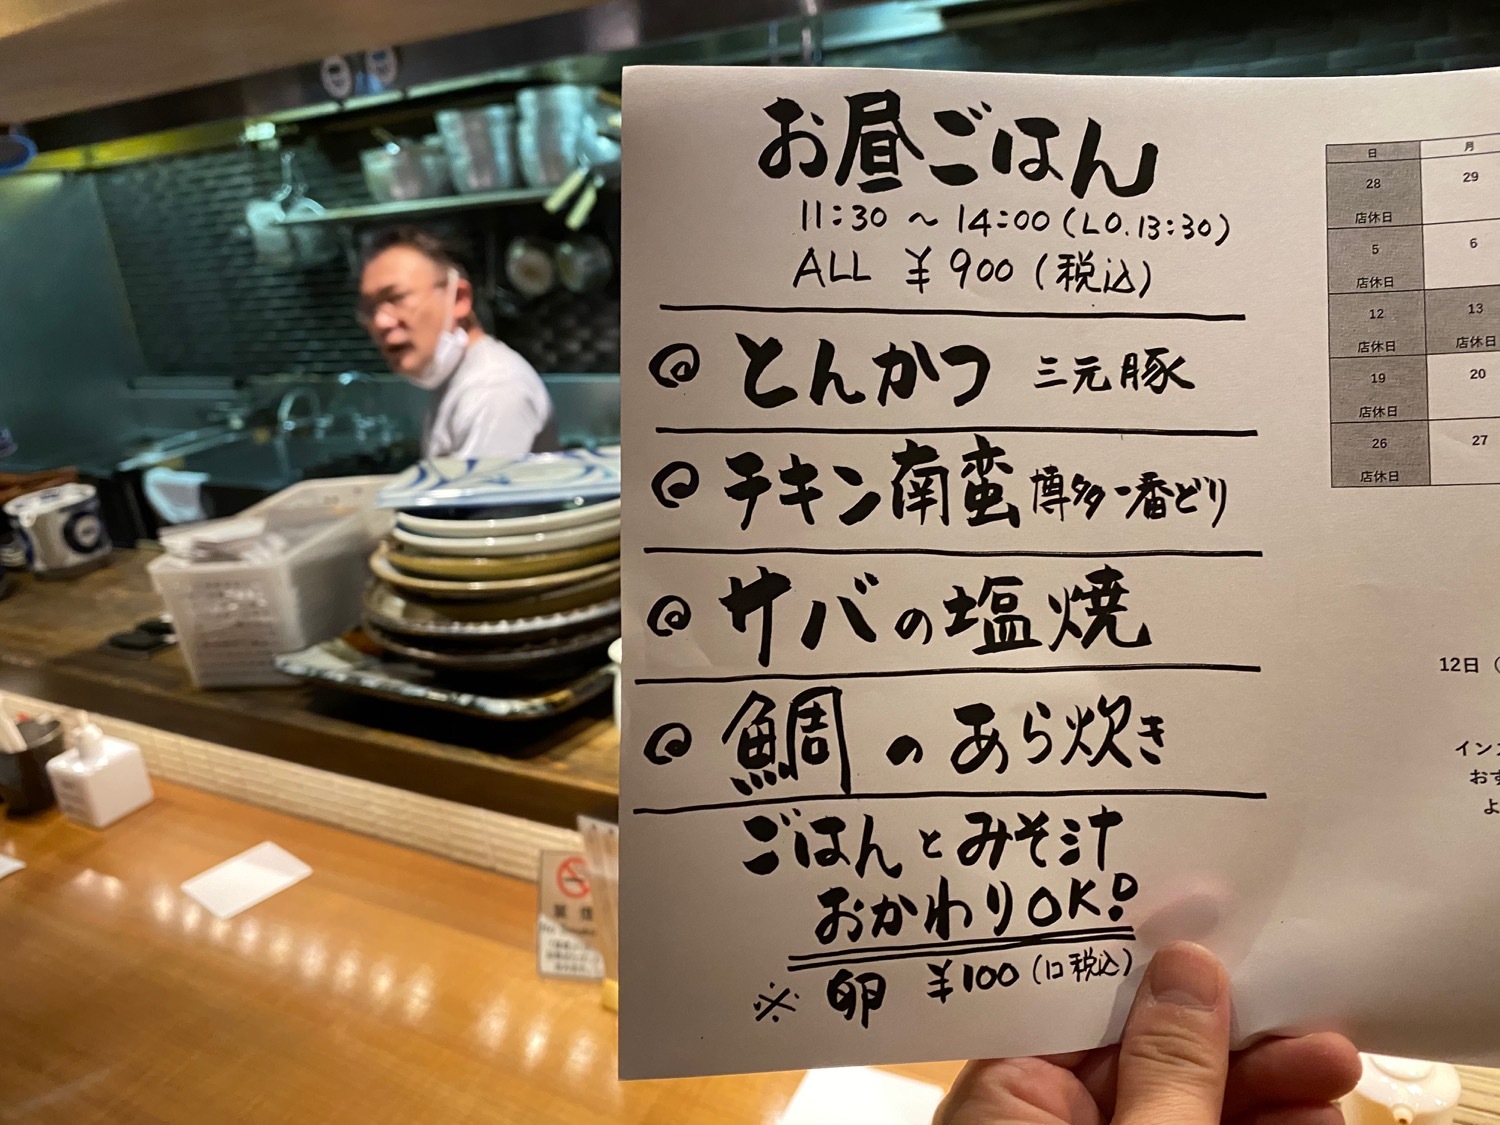 お昼ごはん
11:30 ~ 14:00 (LO.13:30)
ALL ¥900 (税込)
とんかつ 三元豚
チキン南蛮 博多一番どり
サバの塩焼
鯛のあら炊き
ごはんとみそ汁
おかわりOK!
※ 卵 ¥100 (税込)
日 月
28 29
店休日
5 6
店休日
12 13
店休日 店休日
19 20
店休日
26 27
店休日
12日（
イン
お
よ